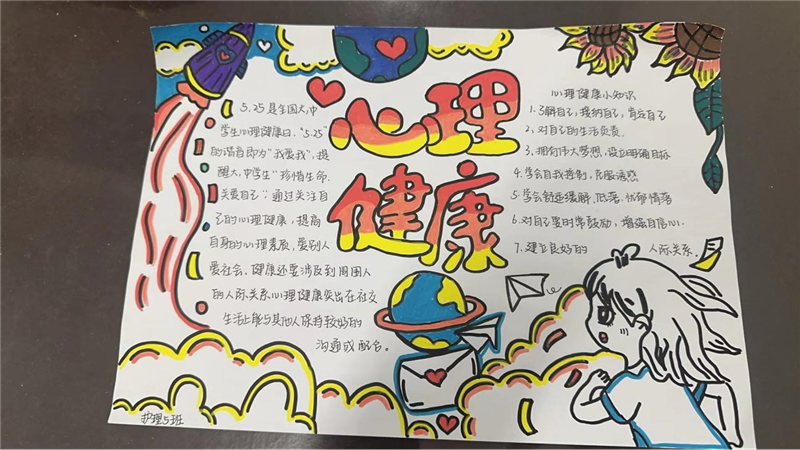 心理
健康
5.25是全国大、中
学生心理健康日，"5.25"
的谐音即为"我爱我"，提
醒大、中学生"珍惜生命、
关爱自己"；通过关注自
己的心理健康，提高
自身的心理素质，爱别人
爱社会，健康还要涉及到周围人
的人际关系心理健康突出在社交
生活上能与其他人保持较好的
沟通或配合。
心理健康小知识
1、了解自己，接纳自己，肯定自己
2、对自己的生活负责.
3、拥有伟大梦想，设立明确目标
4、学会自我控制，克服诱惑
5、学会舒适缓解，低落、忧郁情落
6、对自己要时常鼓励，增强自信心.
7、建立良好的 人际关系。
护理5班